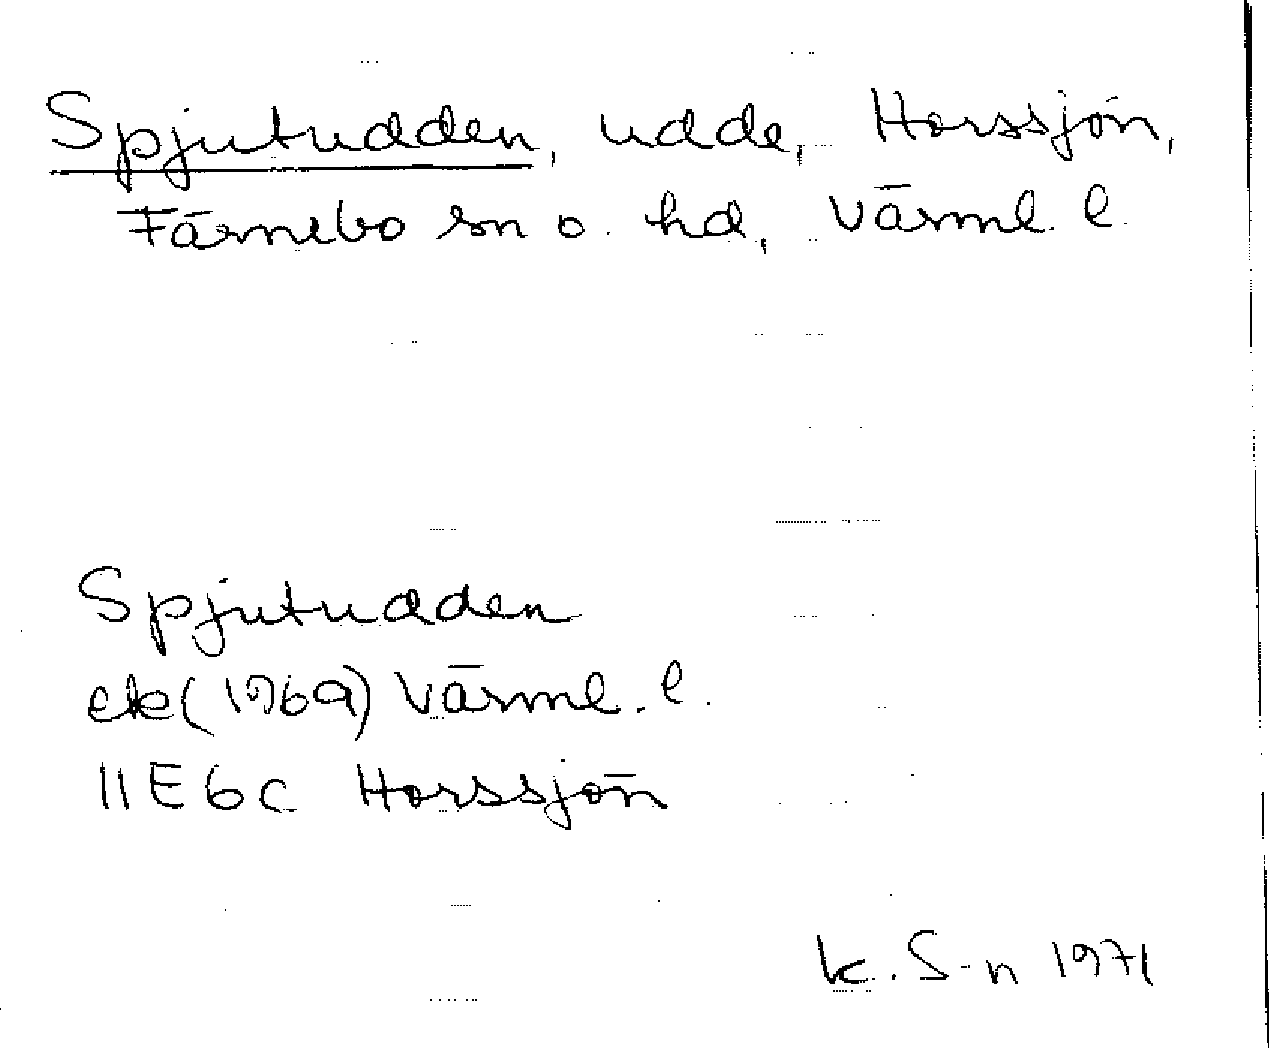 Spjutudden, udde, Horssjön,
Färnebo sn o. hd, Värml. l.
Spjutudden
ek (1969) Värml. l.
11E6c Horssjön
K. S-n 1971